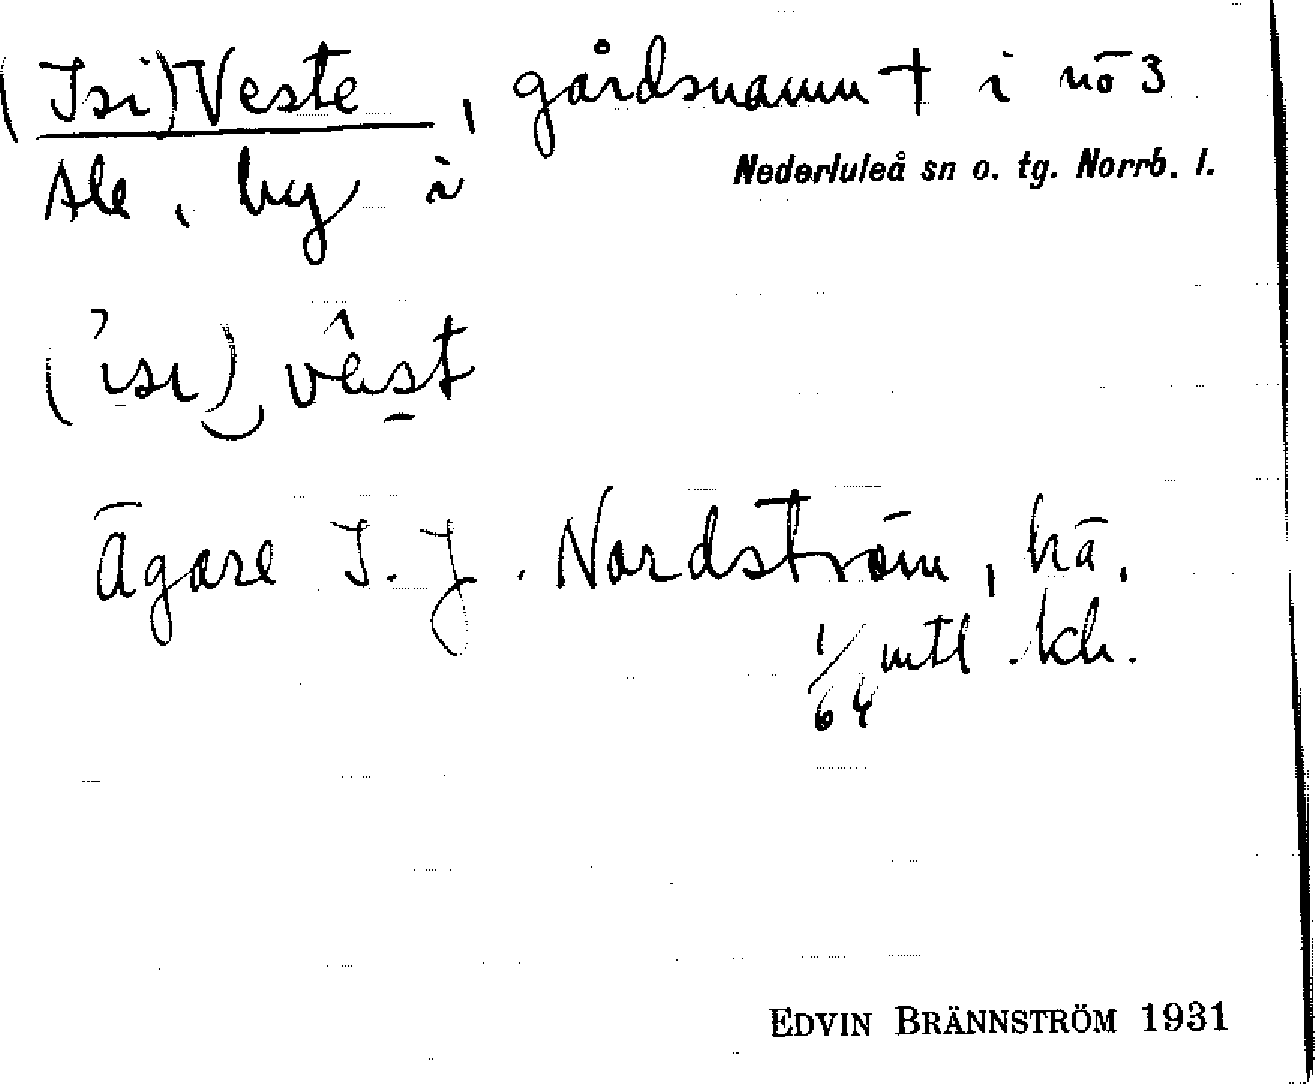 (Isi)Veste, gårdsnamn † i nö 3
Ale, by i Nederluleå sn o. tg. Norrb. l.
(ìsi) vêst
Ägare I. J. Nordström, hä.
1/64 mtl kr.
EDVIN BRÄNNSTRÖM 1931